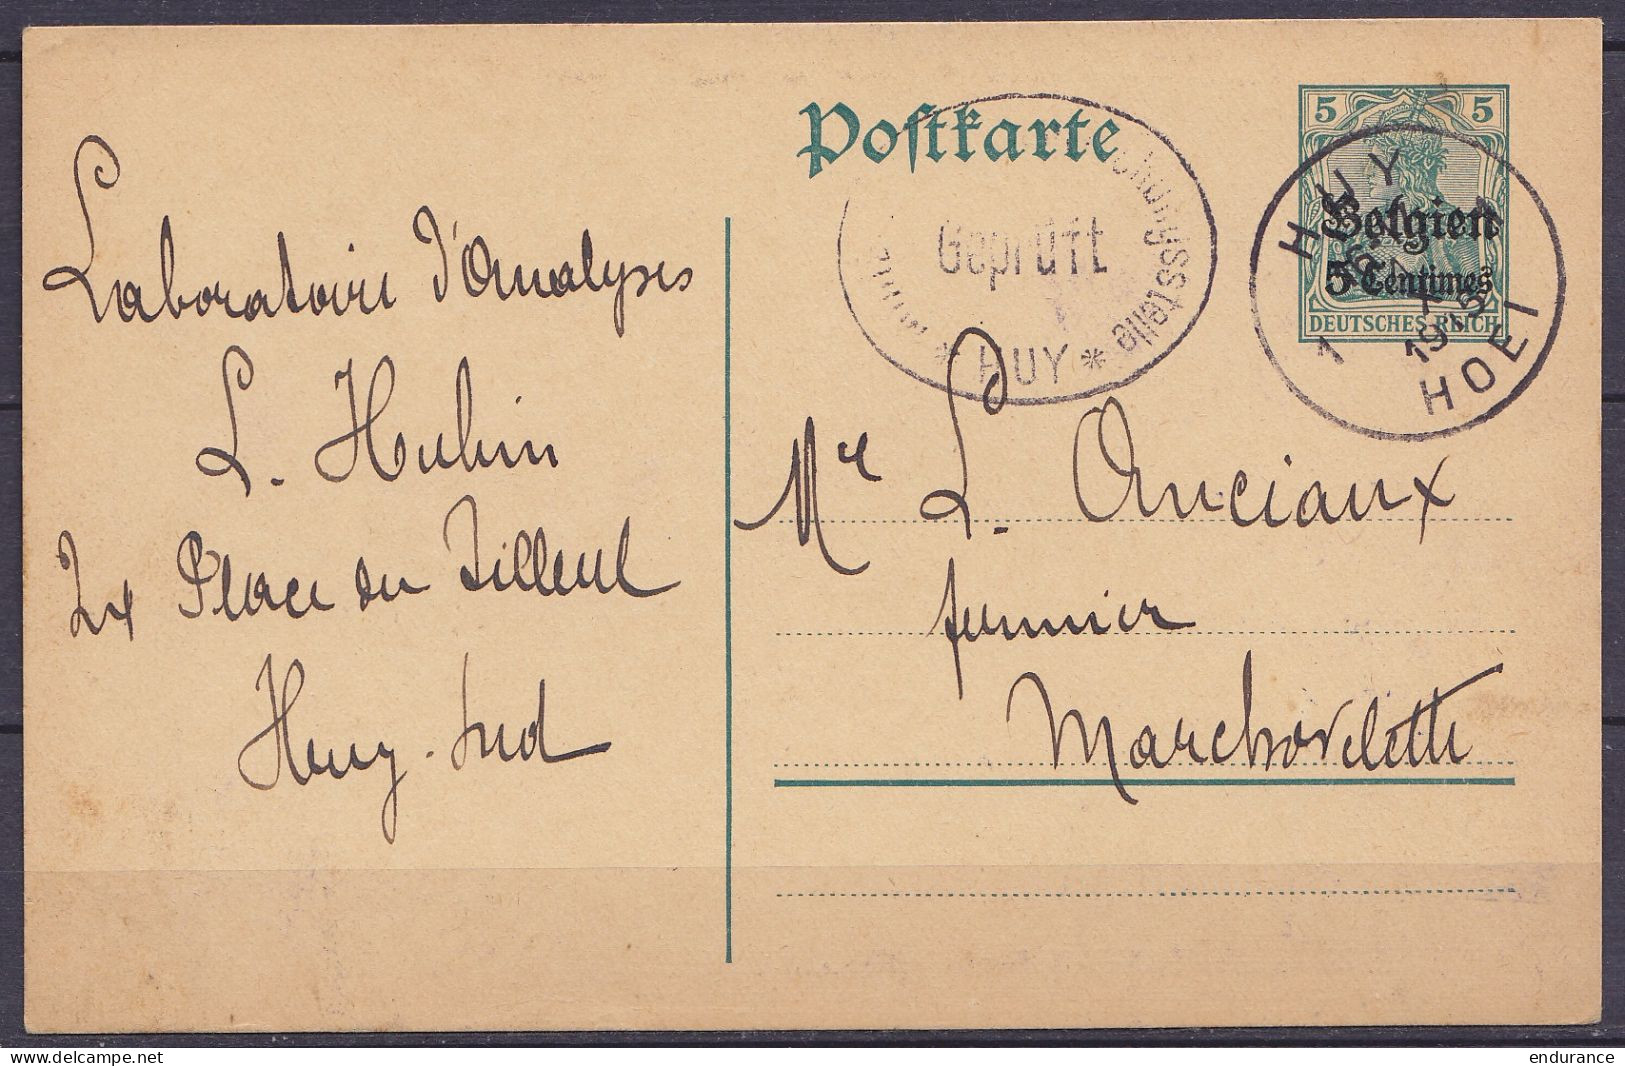 Postkarte
5 5
Belgien
5 Centimes
DEUTSCHES REICH
HUY
1
HOEI
Geprüft
* HUY *
Laboratoire d'Analyses
L. Hubin
Place du Tilleul
Huy-Sud
Mr L. Anciaux
fermier
Marchovelette
endurance